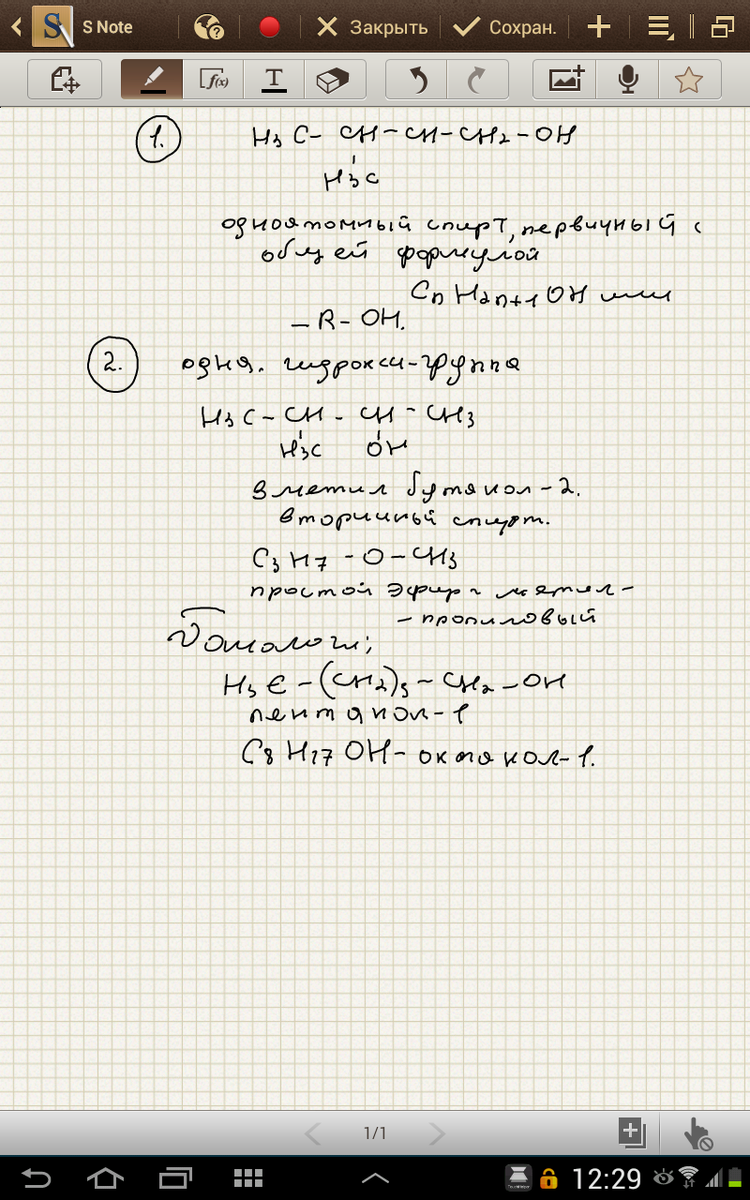 S Note
Закрыть
Сохран.
f(x)
T
1.
H3C-CH-CH-CH2-OH
H3C
одноатомный спирт, первичный с
общей формулой
CnH2n+1OH или
-R-OH.
2. одна. гидрокси-группа
H3C-CH-CH-CH3
H3C OH
3 метил бутанол-2.
вторичный спирт.
C3H7-O-CH3
простой эфир - метил-
-пропиловый
Гомологи;
H3C-(CH2)3-CH2-OH
пентанол-1
C8H17OH-октанол-1.
1/1
12:29